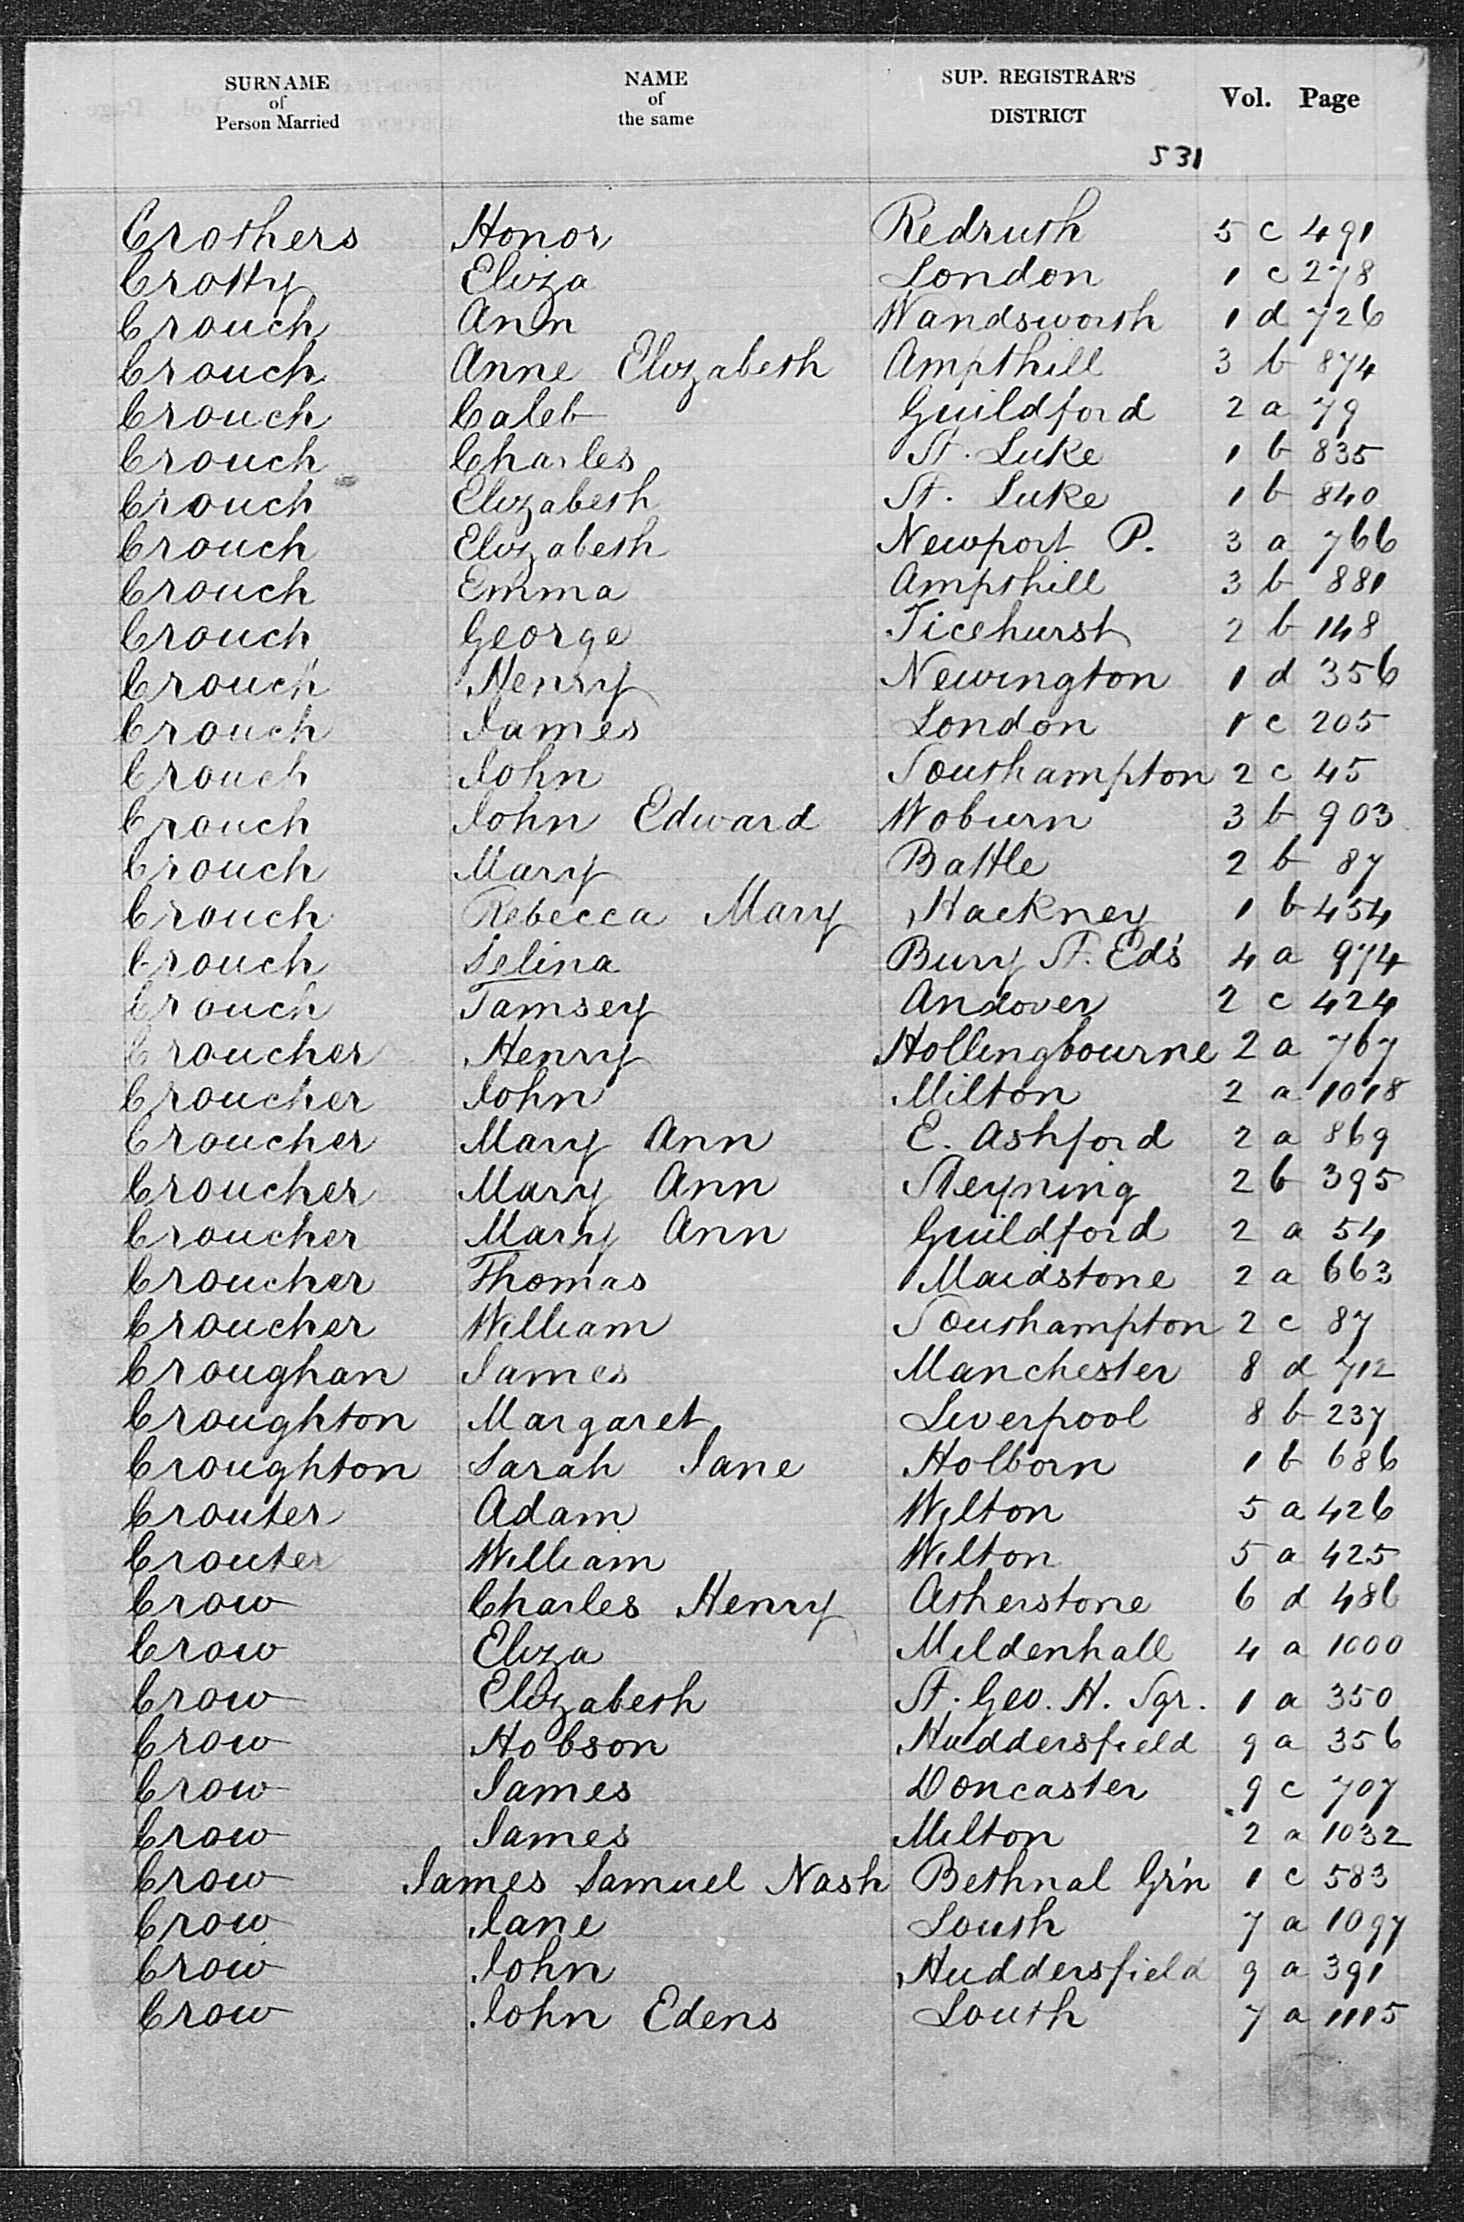 SURNAME of Person Married NAME of the same SUP. REGISTRAR'S DISTRICT Vol. Page
531
Crothers Honor Redruth 5 c 491
Crotty Eliza London 1 c 278
Crouch Ann Wandsworth 1 d 726
Crouch Anne Elizabeth Ampthill 3 b 874
Crouch Caleb Guildford 2 a 79
Crouch Charles St. Luke 1 b 835
Crouch Elizabeth St. Luke 1 b 840
Crouch Elizabeth Newport P. 3 a 766
Crouch Emma Ampthill 3 b 881
Crouch George Ticehurst 2 b 148
Crouch Henry Newington 1 d 356
Crouch James London 1 c 205
Crouch John Southampton 2 c 45
Crouch John Edward Woburn 3 b 903
Crouch Mary Battle 2 b 87
Crouch Rebecca Mary Hackney 1 b 454
Crouch Selina Bury St. Eds 4 a 974
Crouch Tamsey Andover 2 c 424
Croucher Henry Hollingbourne 2 a 767
Croucher John Milton 2 a 1018
Croucher Mary Ann E. Ashford 2 a 869
Croucher Mary Ann Steyning 2 b 395
Croucher Mary Ann Guildford 2 a 54
Croucher Thomas Maidstone 2 a 663
Croucher William Southampton 2 c 87
Croughan James Manchester 8 d 712
Croughton Margaret Liverpool 8 b 237
Croughton Sarah Jane Holborn 1 b 686
Crouter Adam Wilton 5 a 426
Crouter William Wilton 5 a 425
Crow Charles Henry Atherstone 6 d 486
Crow Eliza Mildenhall 4 a 1000
Crow Elizabeth St. Geo. H. Sqr. 1 a 350
Crow Hobson Huddersfield 9 a 356
Crow James Doncaster 9 c 707
Crow James Milton 2 a 1032
Crow James Samuel Nash Bethnal Gr'n 1 c 583
Crow Jane Louth 7 a 1097
Crow John Huddersfield 9 a 391
Crow John Edens Louth 7 a 1115